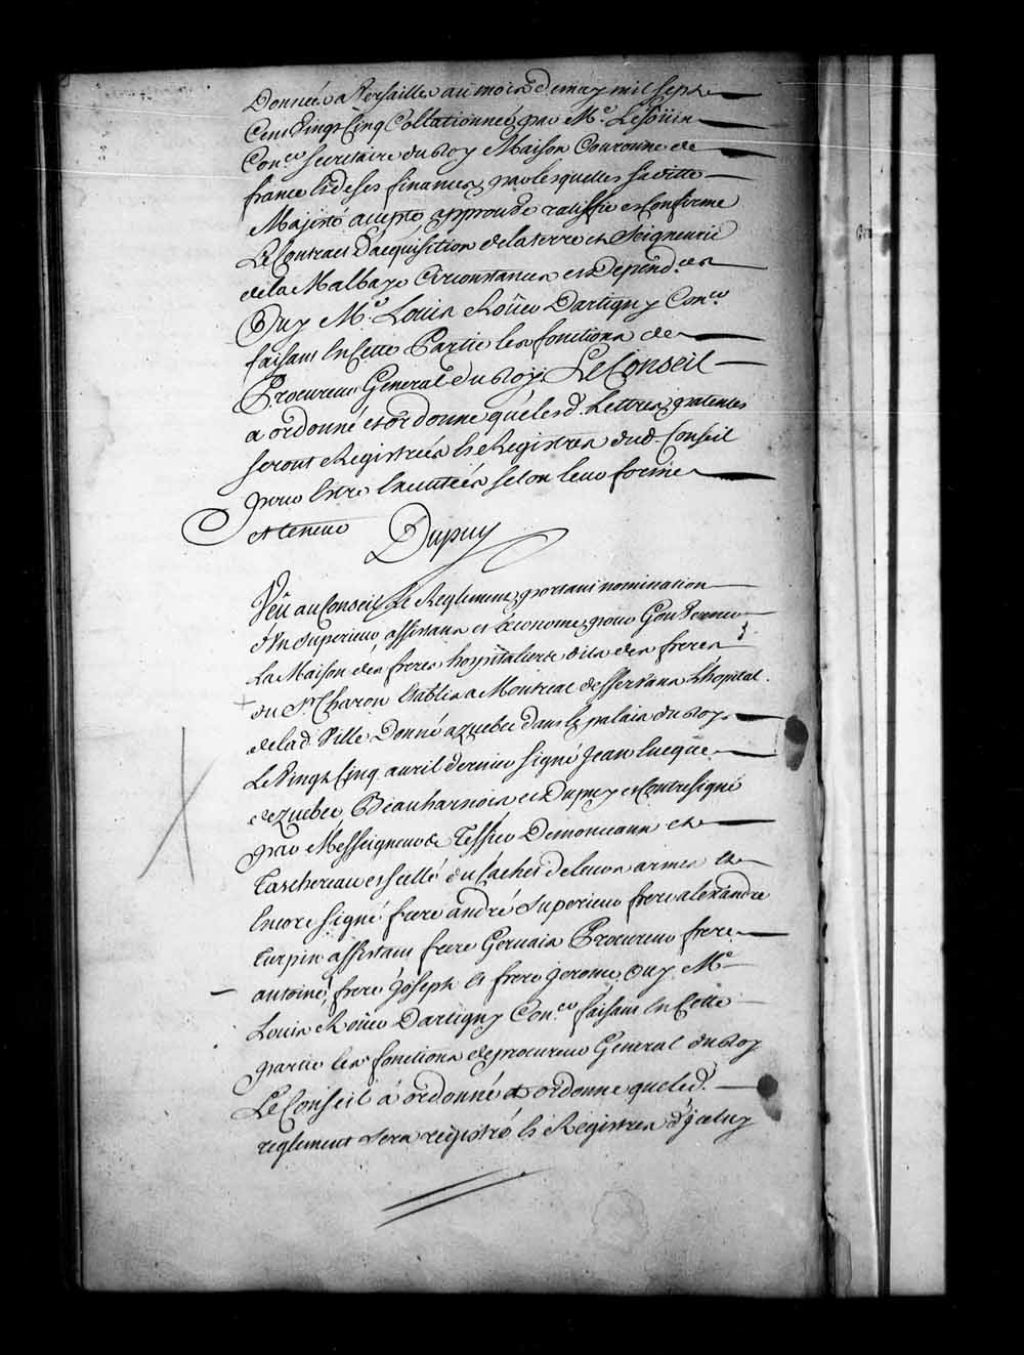 Donnée a Versailles au mois de may mil sept
Cent Vingt Cinq Collationnée par Me. Lesoüin
Coner. Secretaire du Roy Maison Couronne de
france et de ses finances, par lesquelles sa ditte
Majesté accepte approuve ratiffie et Confirme
Le Contract d'acquisition de la terre et Seigneurie
de la Malbaye Circonstances et Depend.ces
Ouy Me. Loüis Roüer Dartigny Coner.
faisant En Cette Partie les fonctions de
Procureur General du Roy. Le Conseil
a ordonné et ordonne que lesd. Lettres patentes
seront Registrées Es Registres dud. Conseil
pour Estre Executées selon leur forme
et teneur Dupuy
Veû au Conseil Le Reglement portant nomination
d'Un superieur, assistans et économe, pour Gouverner
La Maison des freres hospitaliers dits des freres
du Sr. Charon Establis a Montreal desservans L'hôpital
de lad. Ville Donné a quebec dans le palais du Roy
Le Vingt Cinq avril dernier signé Jean Evêque
de quebec, Beauharnois et Dupuy et Contresigné
par Messeigneurs Tessier Demontcann et
Taschereau et scellé du Cachet de leurs armes Et
Encore signé frere andré superieur frere alexandre
turpin assistant frere Gervais Procureur frere
antoine, frere Joseph Et frere jerome, Ouy Me.
Loüis Roüer Dartigny Coner. faisant En Cette
partie les fonctions de procureur General du Roy
Le Conseil a ordonné et ordonne que led.
reglement sera registré Es Registres d'jceluy